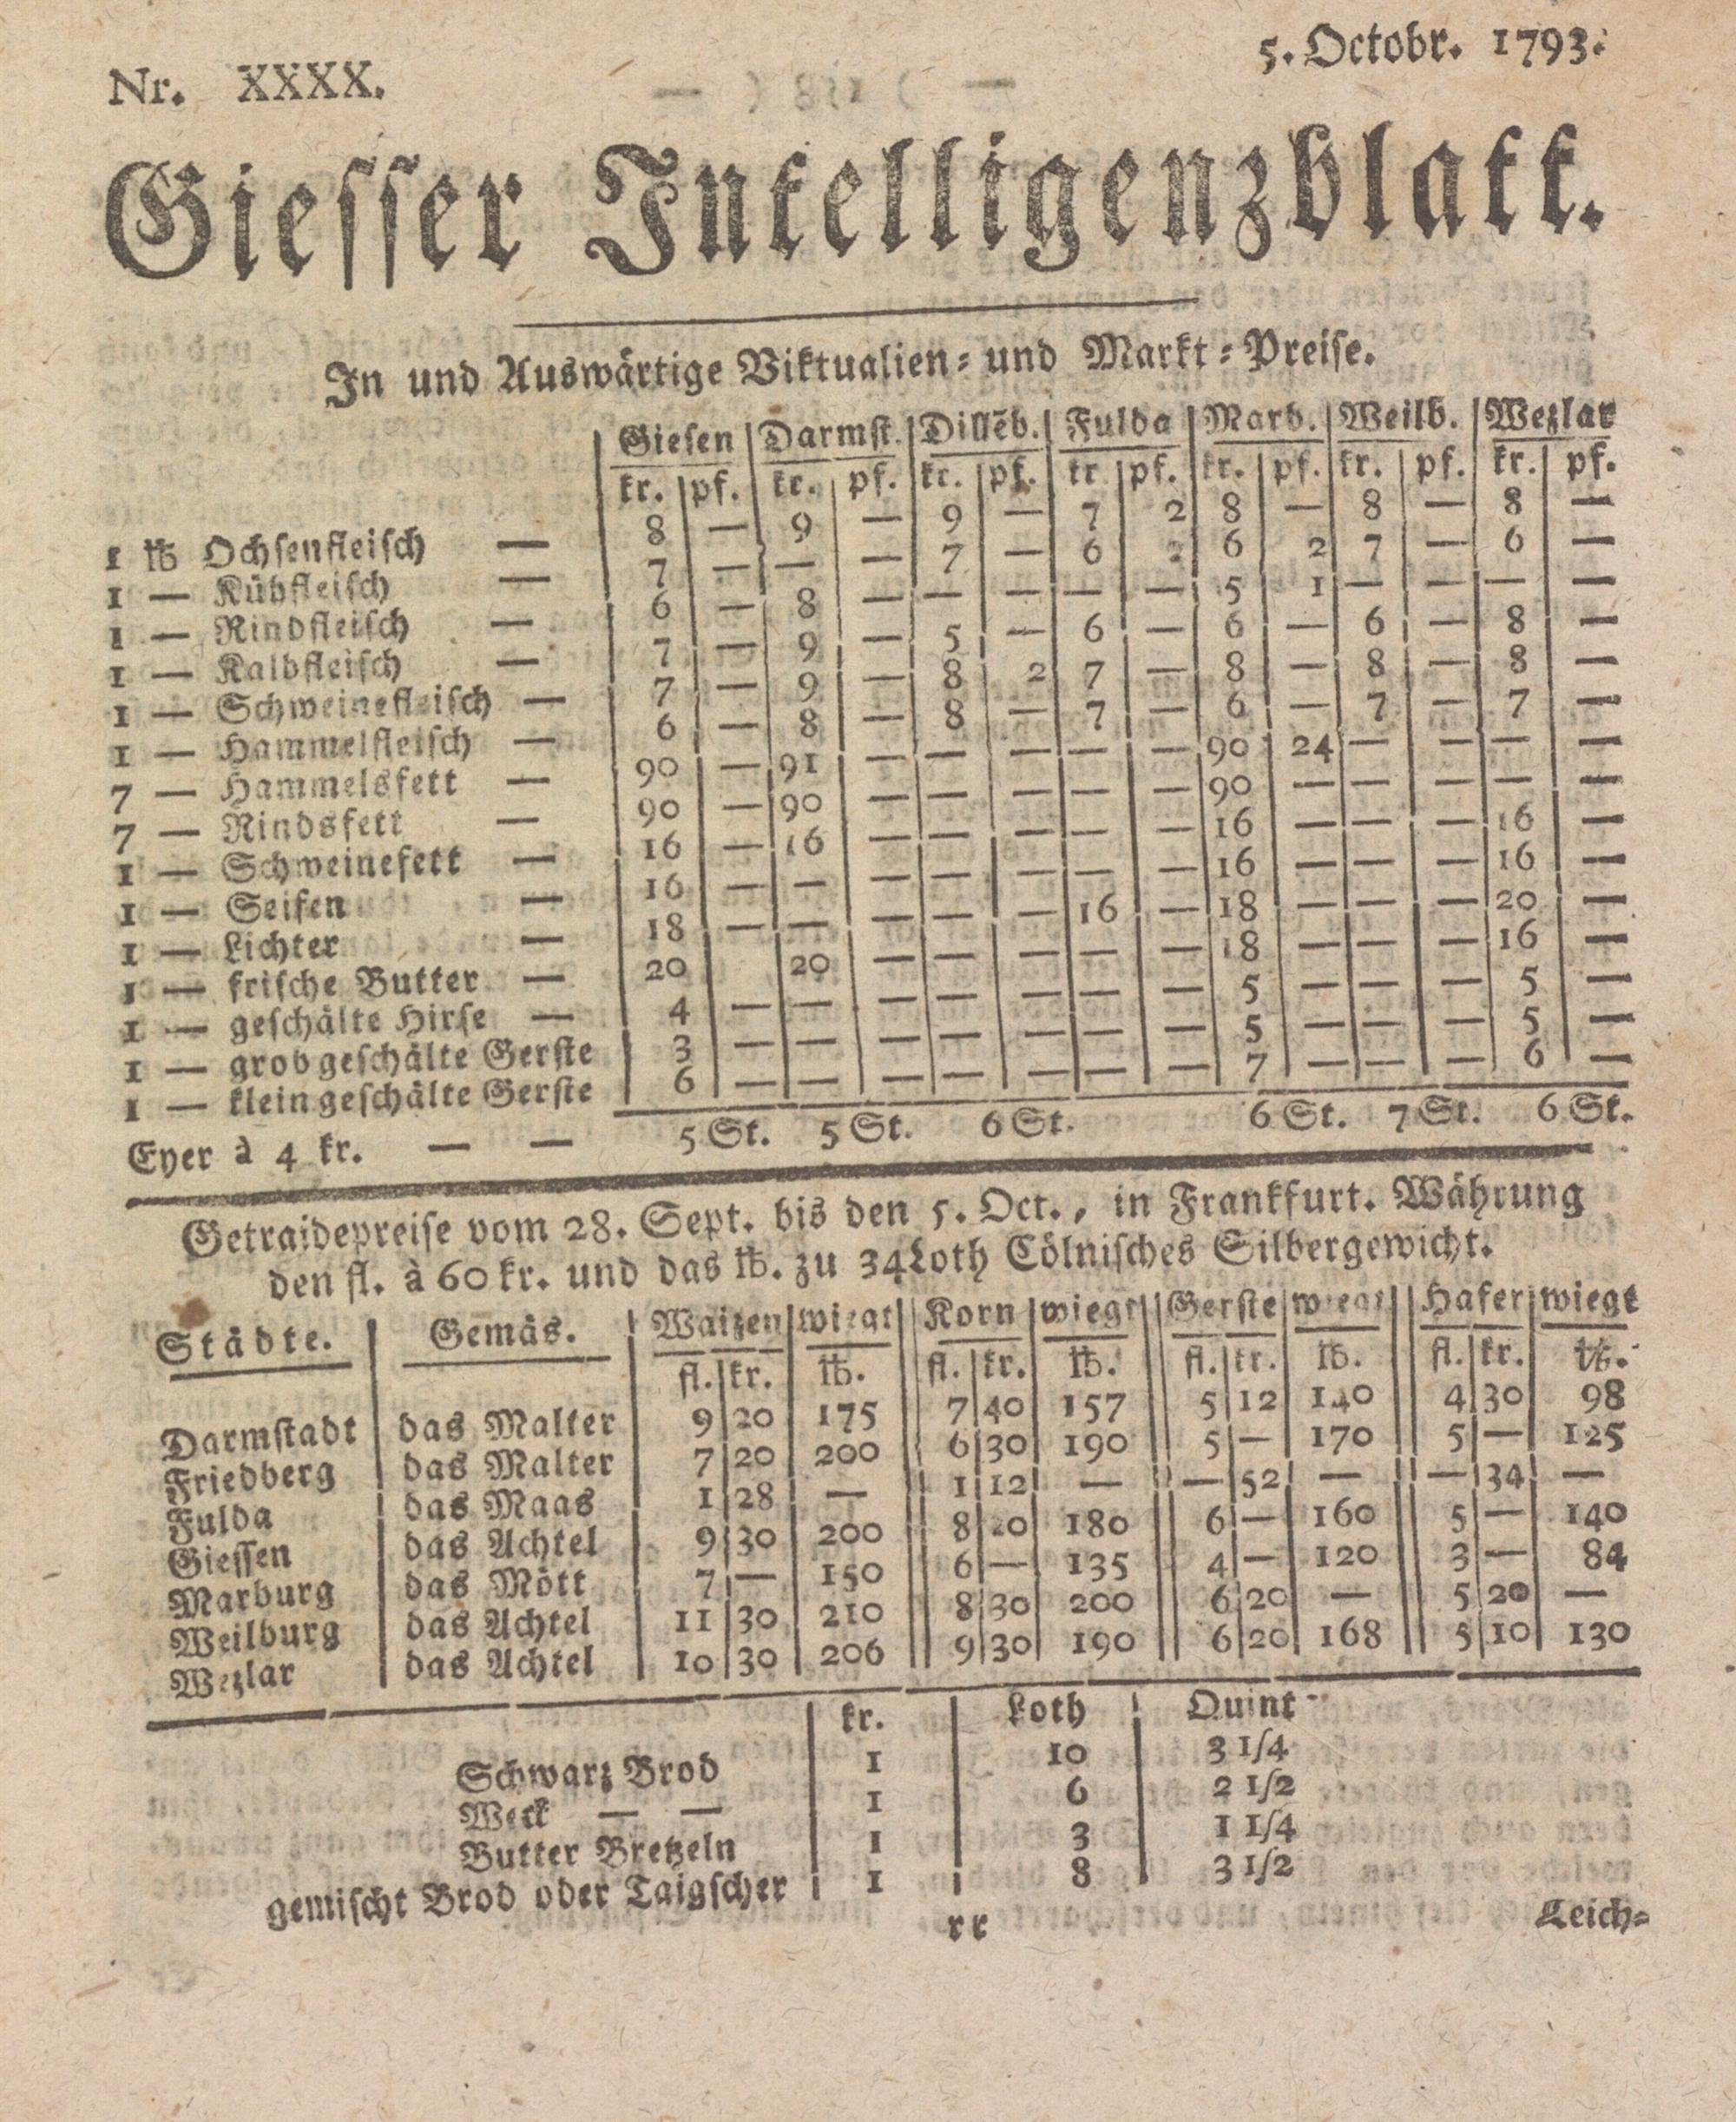 Nr. XXXX.
5. Octobr. 1793.
Giesser Intelligenzblatt.
In und Auswärtige Viktualien- und Markt-Preise.
Giesen Darmst. Dillēb. Fulda Marb. Weilb. Wezlar
kr. pf. kr. pf. kr. pf. kr pf. kr. pf. kr. pf. kr. pf.
1 ℔ Ochsenfleisch — 8 — 9 — 9 — 7 2 8 — 8 — 8 —
1 — Kühfleisch — 7 — — — 7 — 6 2 6 2 7 — 6 —
1 — Rindfleisch — 6 — 8 — — — — — 5 1 — — — —
1 — Kalbfleisch — 7 — 9 — 5 — 6 — 6 — 6 — 8 —
1 — Schweinefleisch — 7 — 9 — 8 2 7 — 8 — 8 — 8 —
1 — Hammelfleisch — 6 — 8 — 8 — 7 — 6 — 7 — 7 —
7 — Hammelsfett — 90 — 91 — — — — — 90 24 — — — —
7 — Rindsfett — 90 — 90 — — — — — 90 — — — — —
1 — Schweinefett — 16 — 16 — — — — — 16 — — — 16 —
1 — Seifen — 16 — — — — — — — 16 — — — 16 —
1 — Lichter — 18 — — — — — 16 — 18 — — — 20 —
1 — frische Butter — 20 20 — — — — — 18 — — — 16 —
1 — geschälte Hirse — 4 — — — — — — — 5 — — — 5 —
1 — grob geschälte Gerste 3 — — — — — — — 5 — — — 5 —
1 — klein geschälte Gerste 6 — — — — — — — 7 — — — 6 —
Eyer à 4 kr. — — 5 St. 5 St. 6 St. 6 St. 7 St. 6 St.
Getraidepreise vom 28. Sept. bis den 5. Oct., in Frankfurt. Währung
den fl. à 60 kr. und das ℔. zu 34 Loth Cölnisches Silbergewicht.
Städte. Gemäs. Waizen wiegt Korn wiegt Gerste wiegt Hafer wiegt
fl. kr. ℔. fl. kr. ℔. fl. kr. ℔. fl. kr. ℔.
Darmstadt das Malter 9 20 175 7 40 157 5 12 140 4 30 98
Friedberg das Malter 7 20 200 6 30 190 5 — 170 5 — 125
Fulda das Maas 1 28 — 1 12 — — 52 — — 34 —
Giessen das Achtel 9 30 200 8 20 180 6 — 160 5 — 140
Marburg das Mött 7 — 150 6 — 135 4 — 120 3 — 84
Weilburg das Achtel 11 30 210 8 30 200 6 20 — 5 20 —
Wezlar das Achtel 10 30 206 9 30 190 6 20 168 5 10 130
kr. Loth Quint
Schwarz Brod 1 10 3 1/4
Weck — — 1 6 2 1/2
Butter Bretzeln 1 3 1 1/4
gemischt Brod oder Taigscher 1 8 3 1/2
rr
Leich-